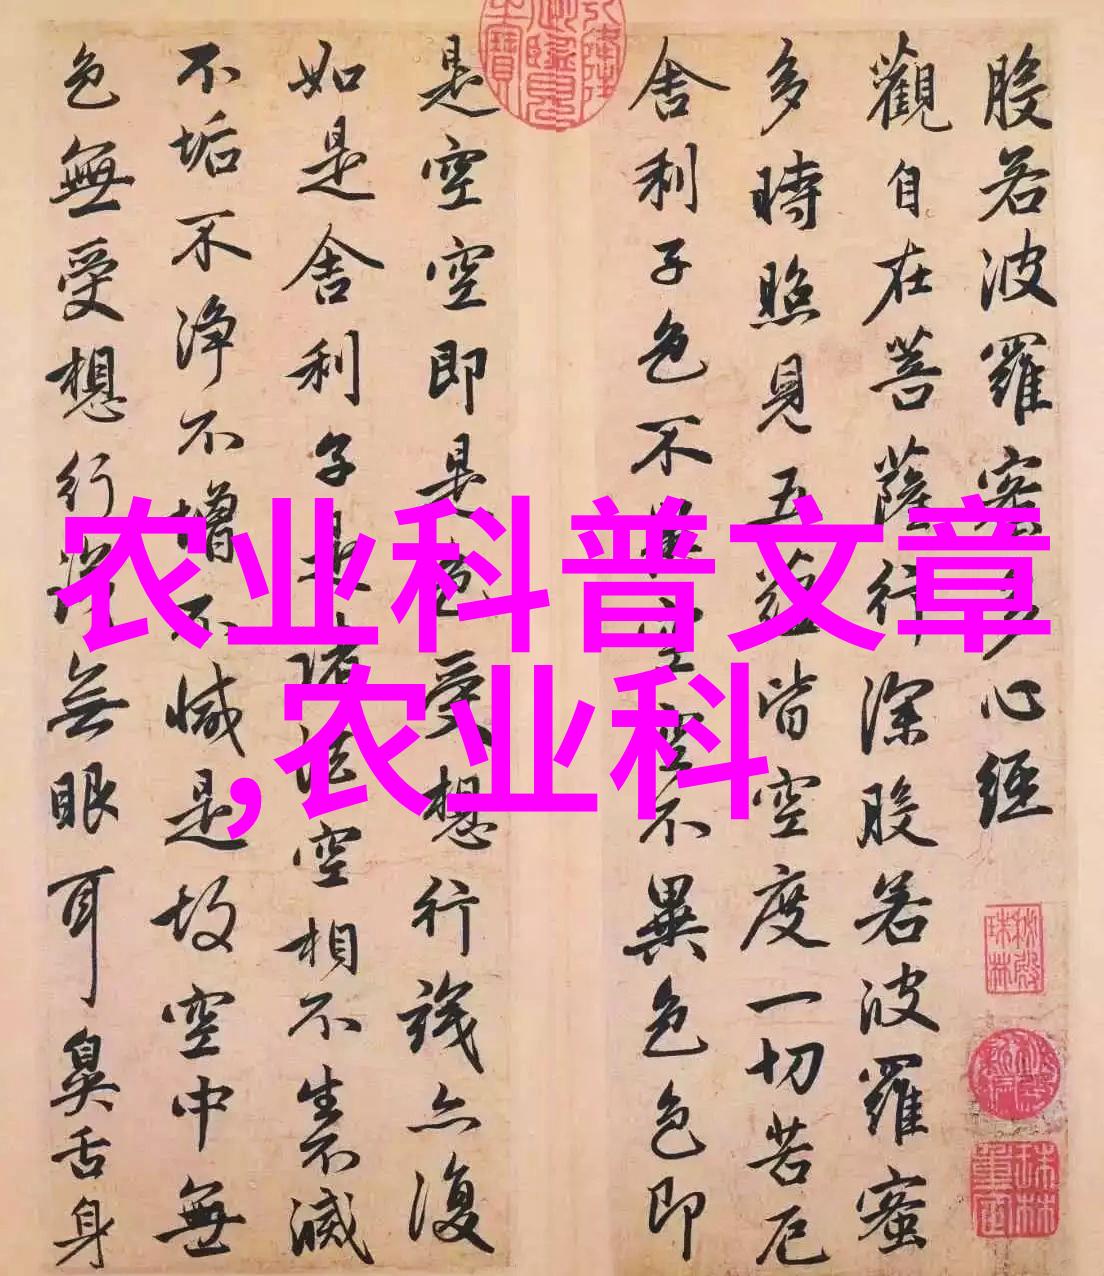 般若波羅蜜多心經
觀自在菩薩行深般若波羅蜜
多時照見五蘊皆空度一切苦厄
舍利子色不異空空不異色色即
是空空即是色受想行識亦復
如是舍利子是諸法空相不生不滅
不垢不淨不增不減是故空中無
色無受想行識無眼耳鼻舌身
农业科普文章
,农业科
秘殿珠林